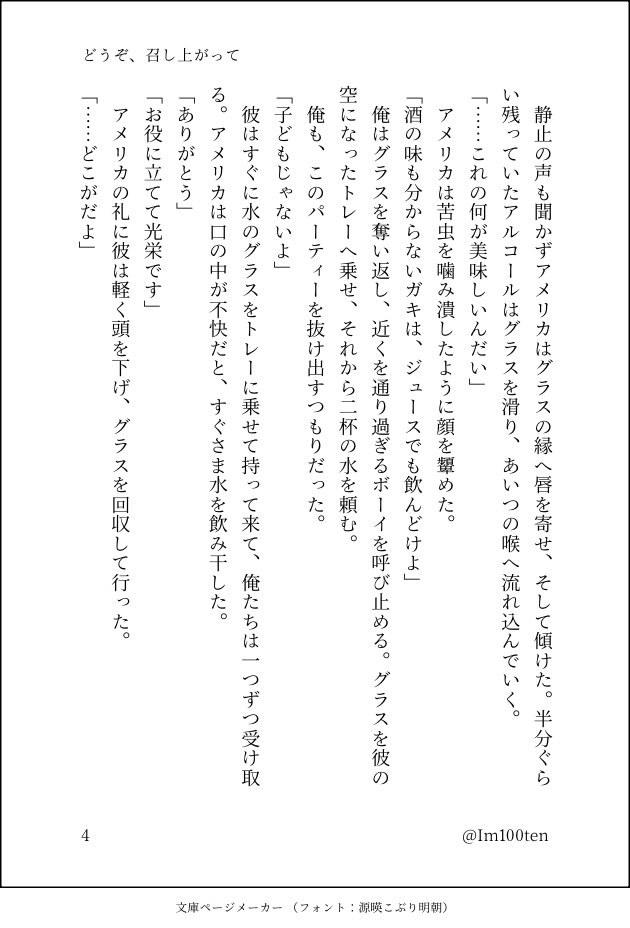 どうぞ、召し上がって
　静止の声も聞かずアメリカはグラスの縁へ唇を寄せ、そして傾けた。半分ぐら
い残っていたアルコールはグラスを滑り、あいつの喉へ流れ込んでいく。
「……これの何が美味しいんだい」
　アメリカは苦虫を噛み潰したように顔を顰めた。
「酒の味も分からないガキは、ジュースでも飲んどけよ」
　俺はグラスを奪い返し、近くを通り過ぎるボーイを呼び止める。グラスを彼の
空になったトレーへ乗せ、それから二杯の水を頼む。
　俺も、このパーティーを抜け出すつもりだった。
「子どもじゃないよ」
　彼はすぐに水のグラスをトレーに乗せて持って来て、俺たちは一つずつ受け取
る。アメリカは口の中が不快だと、すぐさま水を飲み干した。
「ありがとう」
「お役に立てて光栄です」
　アメリカの礼に彼は軽く頭を下げ、グラスを回収して行った。
「……どこがだよ」
4
@Im100ten
文庫ページメーカー （フォント：源暎こぶり明朝）